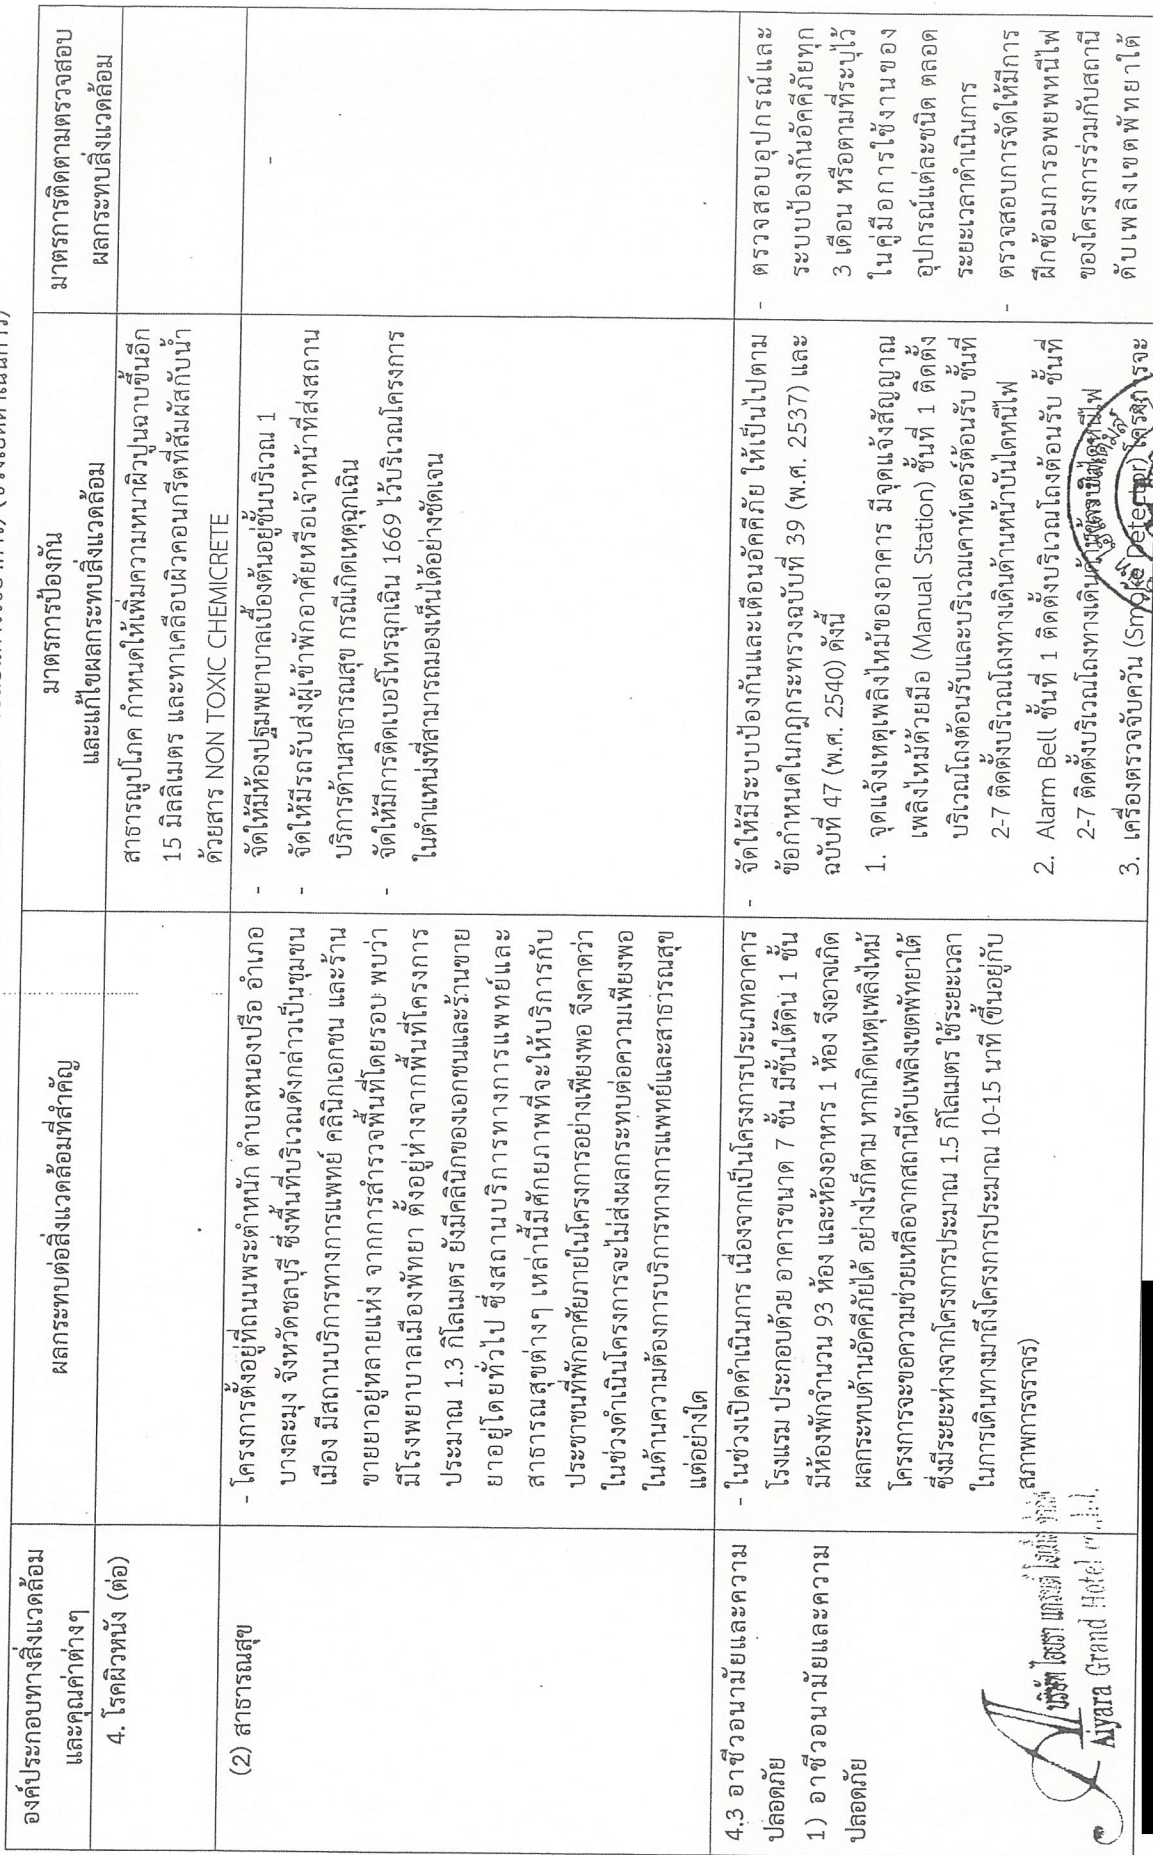 องค์ประกอบทางสิ่งแวดล้อม
และคุณค่าต่างๆ
ผลกระทบต่อสิ่งแวดล้อมที่สำคัญ
มาตรการป้องกัน
และแก้ไขผลกระทบสิ่งแวดล้อม
มาตรการติดตามตรวจสอบ
ผลกระทบสิ่งแวดล้อม
4. โรคผิวหนัง (ต่อ)
สาธารณูปโภค กำหนดให้เพิ่มความหนาผิวปูนฉาบขึ้นอีก
15 มิลลิเมตร และทาเคลือบผิวคอนกรีตที่สัมผัสกับน้ำ
ด้วยสาร NON TOXIC CHEMICRETE
(2) สาธารณสุข
- โครงการตั้งอยู่ที่ถนนพระตำหนัก ตำบลหนองปรือ อำเภอ
บางละมุง จังหวัดชลบุรี ซึ่งพื้นที่บริเวณดังกล่าวเป็นชุมชน
เมือง มีสถานบริการทางการแพทย์ คลินิกเอกชน และร้าน
ขายยาอยู่หลายแห่ง จากการสำรวจพื้นที่โดยรอบ พบว่า
มีโรงพยาบาลเมืองพัทยา ตั้งอยู่ห่างจากพื้นที่โครงการ
ประมาณ 1.3 กิโลเมตร ยังมีคลินิกของเอกชนและร้านขาย
ยาอยู่โดยทั่วไป ซึ่งสถานบริการทางการแพทย์และ
สาธารณสุขต่างๆ เหล่านี้มีศักยภาพที่จะให้บริการกับ
ประชาชนที่พักอาศัยภายในโครงการอย่างเพียงพอ จึงคาดว่า
ในช่วงดำเนินโครงการจะไม่ส่งผลกระทบต่อความเพียงพอ
ในด้านความต้องการบริการทางการแพทย์และสาธารณสุข
แต่อย่างใด
- จัดให้มีห้องปฐมพยาบาลเบื้องต้นอยู่ชั้นบริเวณ 1
- จัดให้มีรถรับส่งผู้เข้าพักอาศัยหรือเจ้าหน้าที่ส่งสถาน
บริการด้านสาธารณสุข กรณีเกิดเหตุฉุกเฉิน
- จัดให้มีการติดเบอร์โทรฉุกเฉิน 1669 ไว้บริเวณโครงการ
ในตำแหน่งที่สามารถมองเห็นได้อย่างชัดเจน
-
4.3 อาชีวอนามัยและความ
ปลอดภัย
1) อาชีวอนามัยและความ
ปลอดภัย
- ในช่วงเปิดดำเนินการ เนื่องจากเป็นโครงการประเภทอาคาร
โรงแรม ประกอบด้วย อาคารขนาด 7 ชั้น มีชั้นใต้ดิน 1 ชั้น
มีห้องพักจำนวน 93 ห้อง และห้องอาหาร 1 ห้อง จึงอาจเกิด
ผลกระทบด้านอัคคีภัยได้ อย่างไรก็ตาม หากเกิดเหตุเพลิงไหม้
โครงการจะขอความช่วยเหลือจากสถานีดับเพลิงเขตพัทยาใต้
ซึ่งมีระยะห่างจากโครงการประมาณ 1.5 กิโลเมตร ใช้ระยะเวลา
ในการเดินทางมาถึงโครงการประมาณ 10-15 นาที (ขึ้นอยู่กับ
สภาพการจราจร)
- จัดให้มีระบบป้องกันและเตือนอัคคีภัย ให้เป็นไปตาม
ข้อกำหนดในกฎกระทรวงฉบับที่ 39 (พ.ศ. 2537) และ
ฉบับที่ 47 (พ.ศ. 2540) ดังนี้
1. จุดแจ้งเหตุเพลิงไหม้ของอาคาร มีจุดแจ้งสัญญาณ
เพลิงไหม้ด้วยมือ (Manual Station) ชั้นที่ 1 ติดตั้ง
บริเวณโถงต้อนรับและบริเวณเคาท์เตอร์ต้อนรับ ชั้นที่
2-7 ติดตั้งบริเวณโถงทางเดินด้านหน้าบันไดหนีไฟ
2. Alarm Bell ชั้นที่ 1 ติดตั้งบริเวณโถงต้อนรับ ชั้นที่
2-7 ติดตั้งบริเวณโถงทางเดินด้านหน้าบันไดหนีไฟ
3. เครื่องตรวจจับควัน (Smoke Detector) โครงการจะ
- ตรวจสอบอุปกรณ์และ
ระบบป้องกันอัคคีภัยทุก
3 เดือน หรือตามที่ระบุไว้
ในคู่มือการใช้งานของ
อุปกรณ์แต่ละชนิด ตลอด
ระยะเวลาดำเนินการ
- ตรวจสอบการจัดให้มีการ
ฝึกซ้อมการอพยพหนีไฟ
ของโครงการร่วมกับสถานี
ดับเพลิงเขตพัทยาใต้
บริษัท ไอยรา แกรนด์ โฮเต็ล จำกัด
Aiyara Grand Hotel